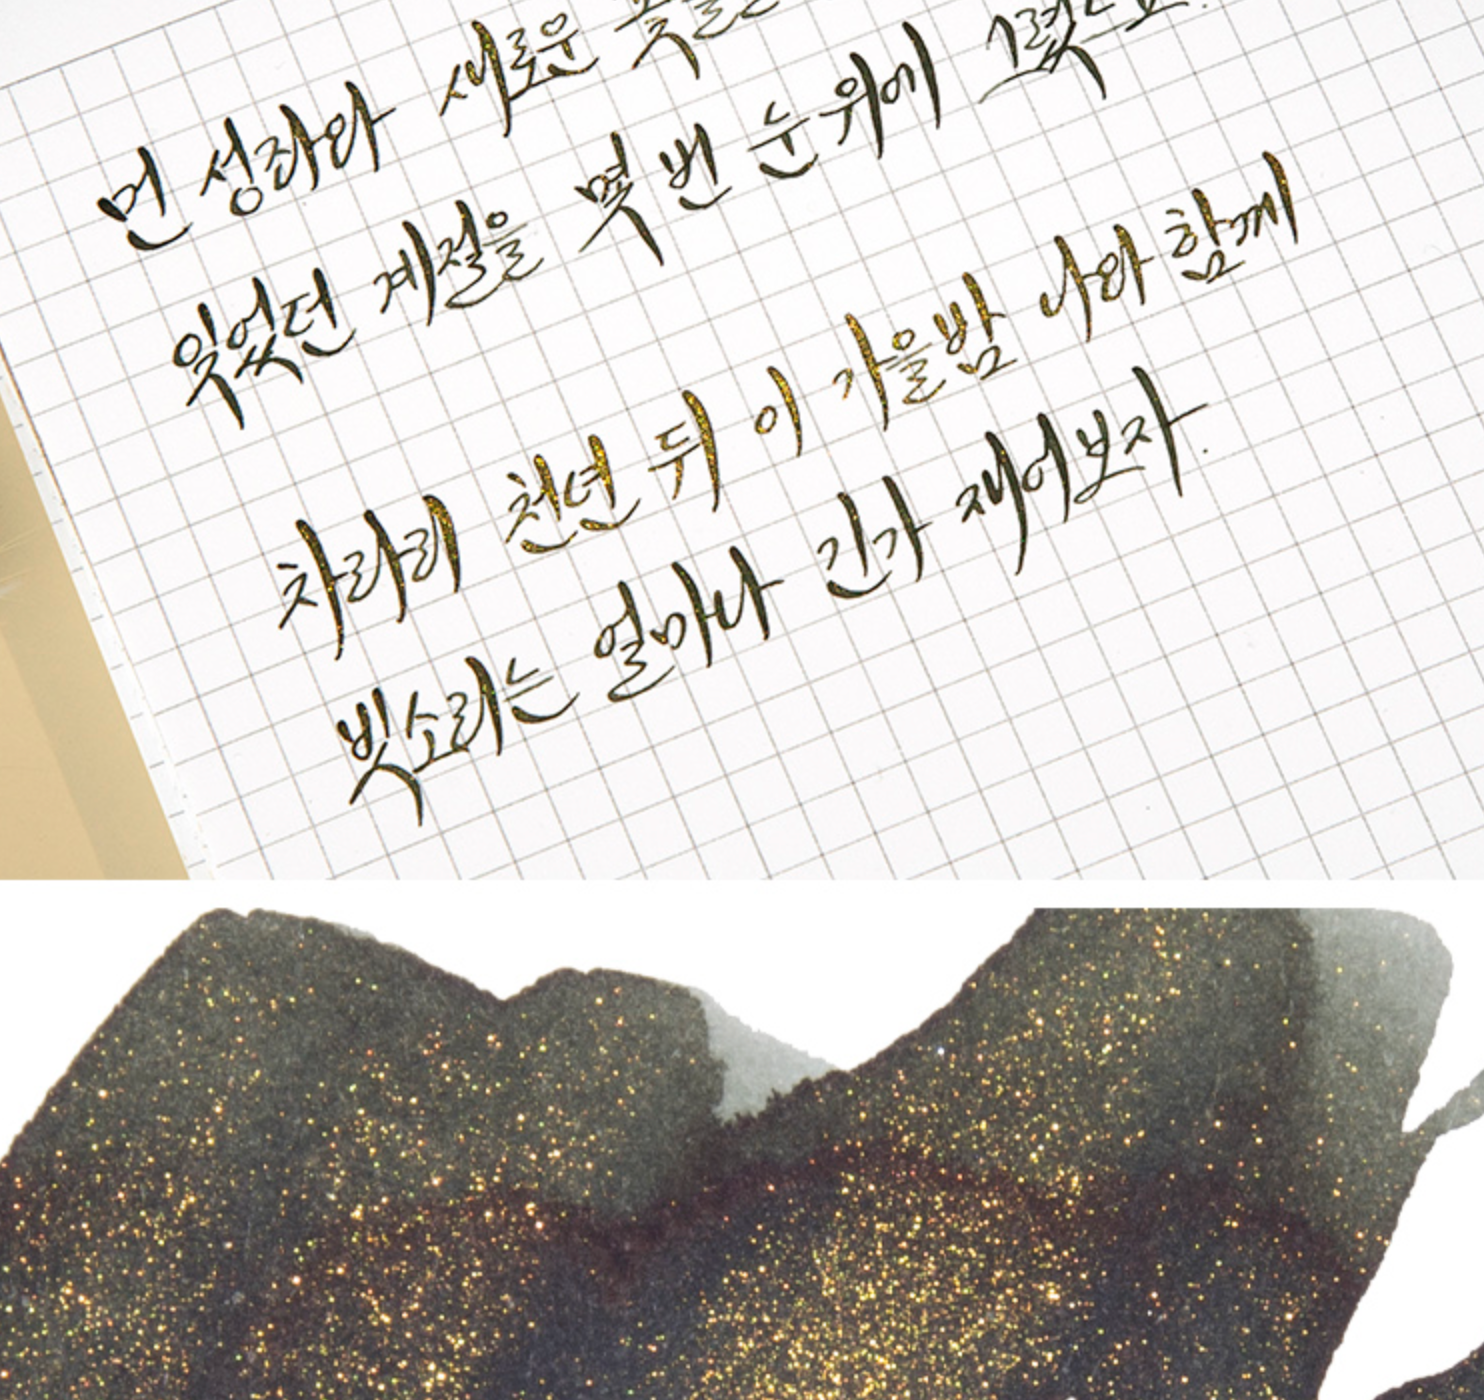 먼 성좌와 새로운 꽃들을
잊었던 계절을 몇 번 눈 위에 그렸느뇨.
차라리 천년 뒤 이 가을밤 나와 함께
빗소리는 얼마나 긴가 재어보자.